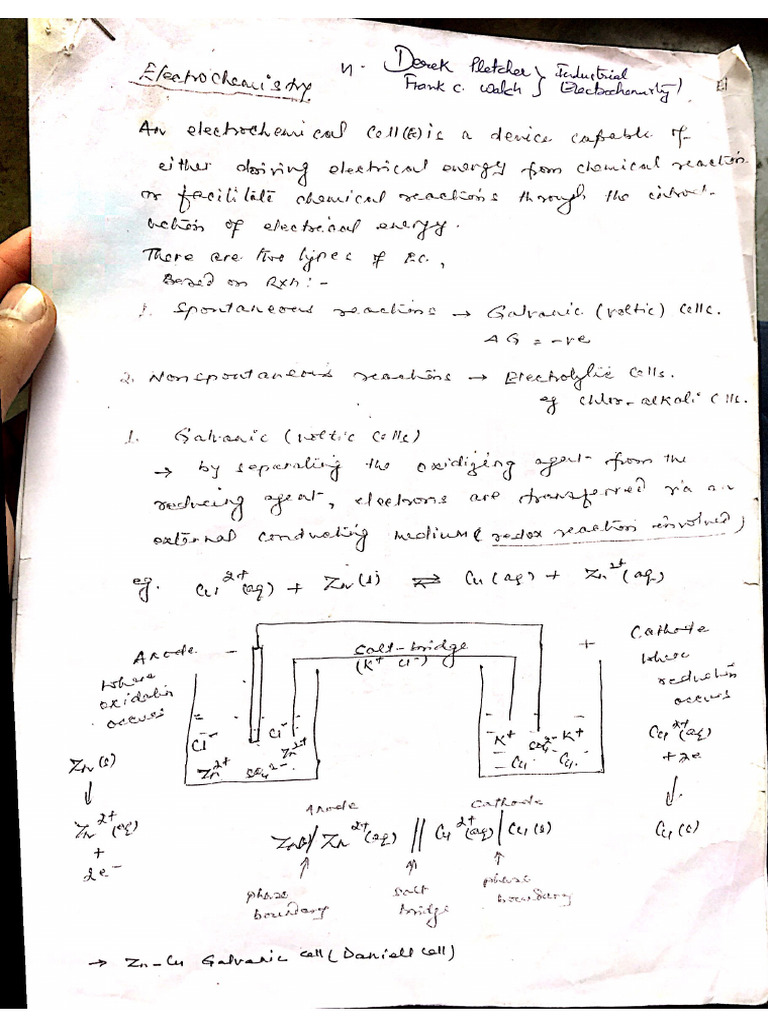 Electrochemistry
Derek Pletcher } Industrial
Frank C. Walsh } Electrochemistry
An electrochemical cell(E) is a device capable of
either driving electrical energy from chemical reaction
or facilitate chemical reactions through the introd-
uction of electrical energy.
There are two types of E.C.,
Based on Rxn:-
1. Spontaneous reactions → Galvanic (voltic) Cells.
ΔG = -ve
2. Nonspontaneous reactions → Electrolytic Cells.
eg chlor-alkali cells.
1. Galvanic (voltic cells)
→ by separating the oxidizing agent from the
reducing agent, electrons are transferred via an
external conducting medium (redox reaction involved)
eg. Cu²⁺(aq) + Zn(s) ⇌ Cu(aq) + Zn²⁺(aq)
Anode -
where
oxidatin
occures
Salt-bridge
(K⁺ Cl⁻)
+ Cathode
where
reduction
occures
Cl⁻ Cl⁻
Zn²⁺ SO₄²⁻ Zn²⁺
K⁺ SO₄²⁻ K⁺
Cu Cu
Zn(s)
↓
Zn²⁺(aq)
+
2e⁻
Cu²⁺(aq)
+ 2e
↓
Cu(s)
Anode Cathode
Zn(s)/Zn²⁺(aq) // Cu²⁺(aq)/Cu(s)
↑ ↑ ↑
phase boundary
salt bridge
phase boundary
→ Zn-Cu Galvanic cell (Daniell cell)